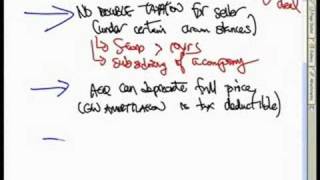 deal
NO DOUBLE TAXATION for seller
(under certain circumstances)
↳ Scorp > 10yrs
↳ subsidiary of a company
ACQ can depreciate full price
(GW AMORTIZATION is tax deductible)